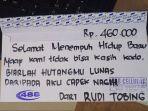 Rp. 460.000
Selamat Menempuh Hidup Baru
Maaf kami tidak bisa kasih kado.
BIARLAH HUTANGMU LUNAS
DARIPADA AKU CAPEK NAGIH
DARI RUDI TOBING